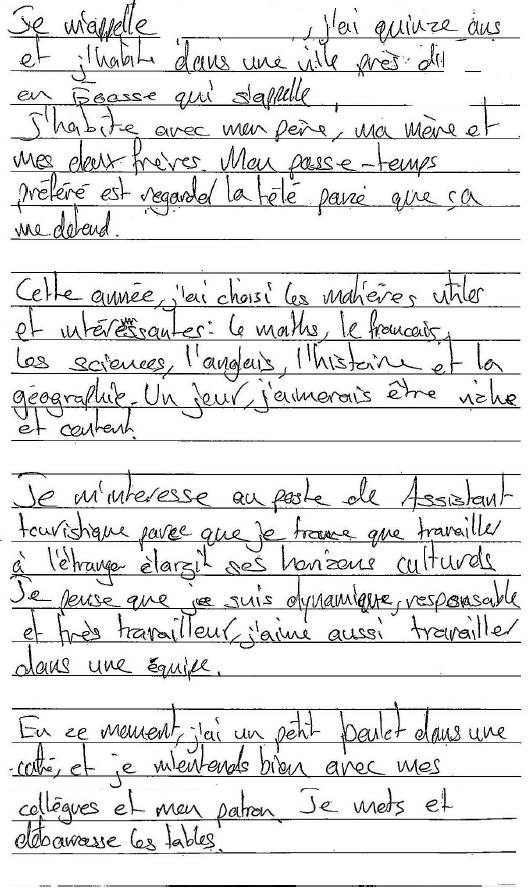 Je m'appelle , j'ai quinze ans
et j'habite dans une ville près di
en Écosse qui s'appelle
J'habite avec mon père, ma mère et
mes deux frères. Mon passe-temps
préféré est regarder la télé parce que ça
me détend.
Cette année, j'ai choisi les matières utiles
et intéressantes: le maths, le français,
les sciences, l'anglais, l'histoire et la
géographie. Un jour, j'aimerais être riche
et content.
Je m'interesse au poste de Assistant
touristique parce que je trouve que travailler
à l'étranger élargit ses horizons culturels
Je pense que je suis dynamique, responsable
et très travailleur, j'aime aussi travailler
dans une équipe.
En ce moment, j'ai un petit boulot dans une
café, et je m'entends bien avec mes
collègues et mon patron. Je mets et
débarrasse les tables.